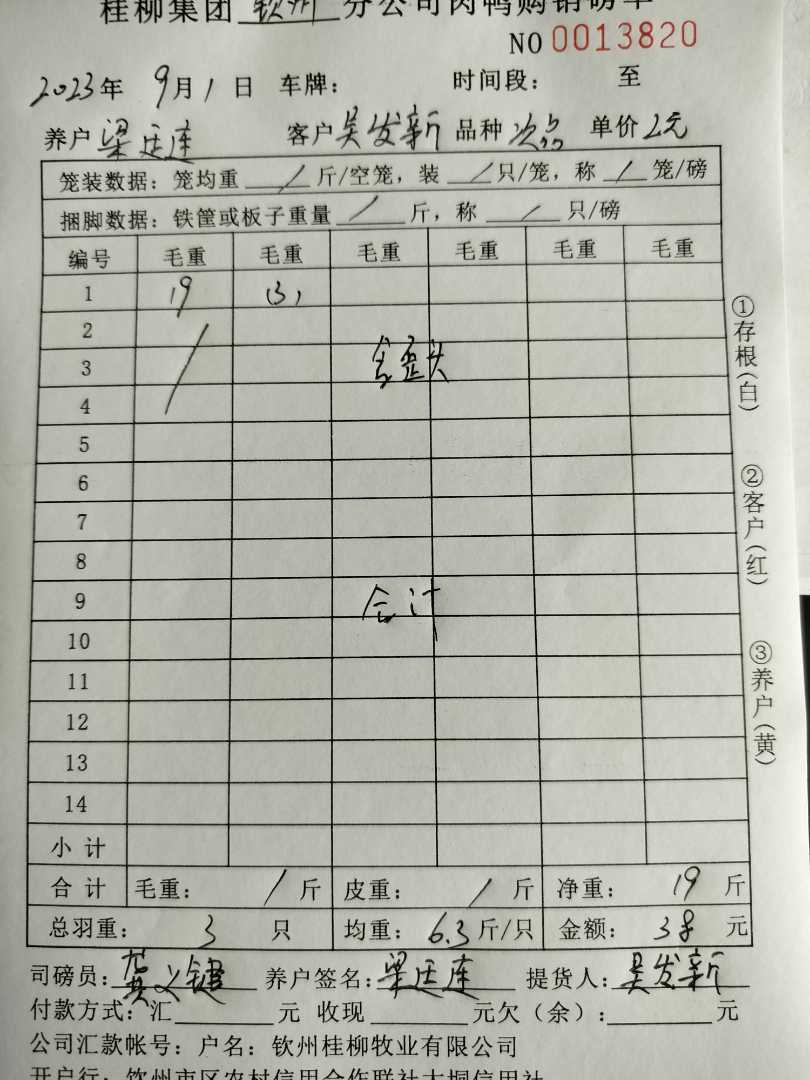 桂柳集团 钦州 分公司肉鸭购销磅单
NO 0013820
2023年 9月1日 车牌： 时间段： 至
养户 梁廷连 客户 吴发新 品种 次品 单价 2元
笼装数据：笼均重 / 斤/空笼，装 / 只/笼，称 / 笼/磅
捆脚数据：铁筐或板子重量 / 斤，称 / 只/磅
编号 毛重 毛重 毛重 毛重 毛重 毛重
1 19 (3)
2
3 含歪头
4
5
6
7
8
9 合计
10
11
12
13
14
小计
合计 毛重： / 斤 皮重： / 斤 净重： 19 斤
总羽重： 3 只 均重： 6.3 斤/只 金额： 38 元
司磅员： 义键 养户签名：梁廷连 提货人：吴发新
付款方式：汇 元 收现 元欠（余）： 元
公司汇款帐号：户名：钦州桂柳牧业有限公司
开户行：钦州市区农村信用合作联社大垌信用社
①存根（白）
②客户（红）
③养户（黄）